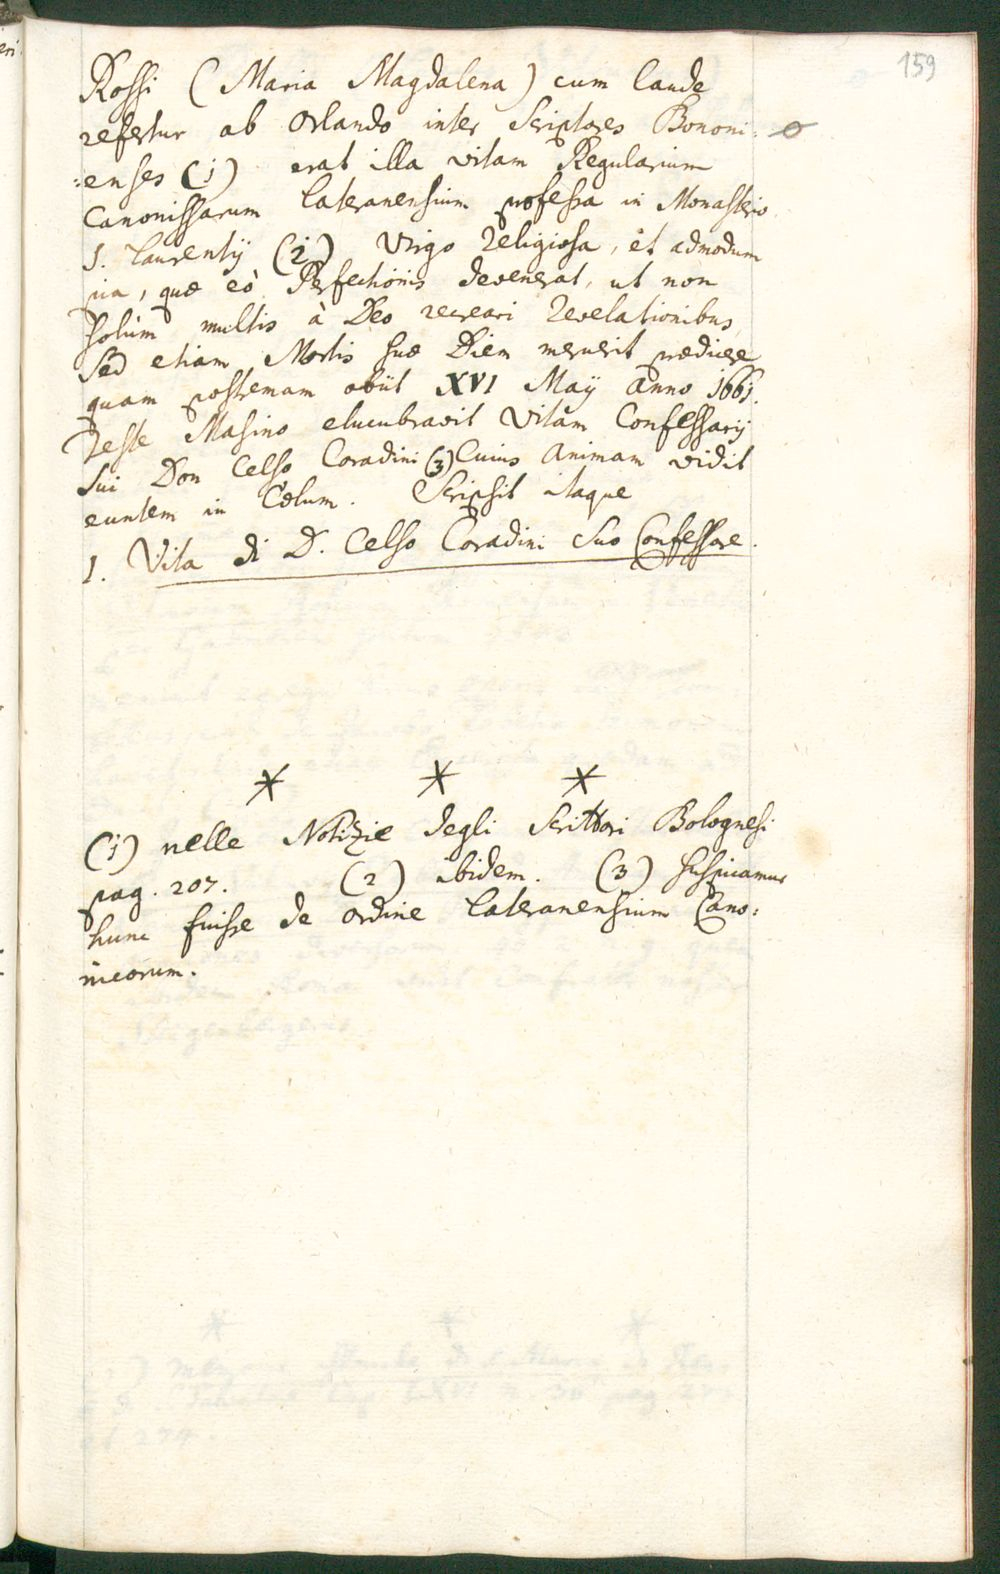 159
Rossi (Maria Magdalena) cum laude
refertur ab Orlando inter Scriptores Bononi:
:enses (1) erat illa vitam Regularium
Canonissarum Lateranensium professa in Monasterio
S. Laurentij (2) Virgo religiosa, et admodum
pia, quæ eò Perfectionis devenerat, ut non
solùm multis à Deo recreari revelationibus
sed etiam Mortis suæ Diem meruerit prædicere
quam postremam obijt XVI Maij anno 1661.
Teste Masino elucubravit Vitam Confessarij
sui Don Celso Coradini (3) Cuius Animam vidit
euntem in Cœlum. Scripsit itaque
1. Vita di D. Celso Coradini suo Confessore.
(1) nelle Notizie degli Scrittori Bolognesi
pag. 207. (2) ibidem. (3) suspicamur
hunc fuisse de ordine Lateranensium Cano:
nicorum.